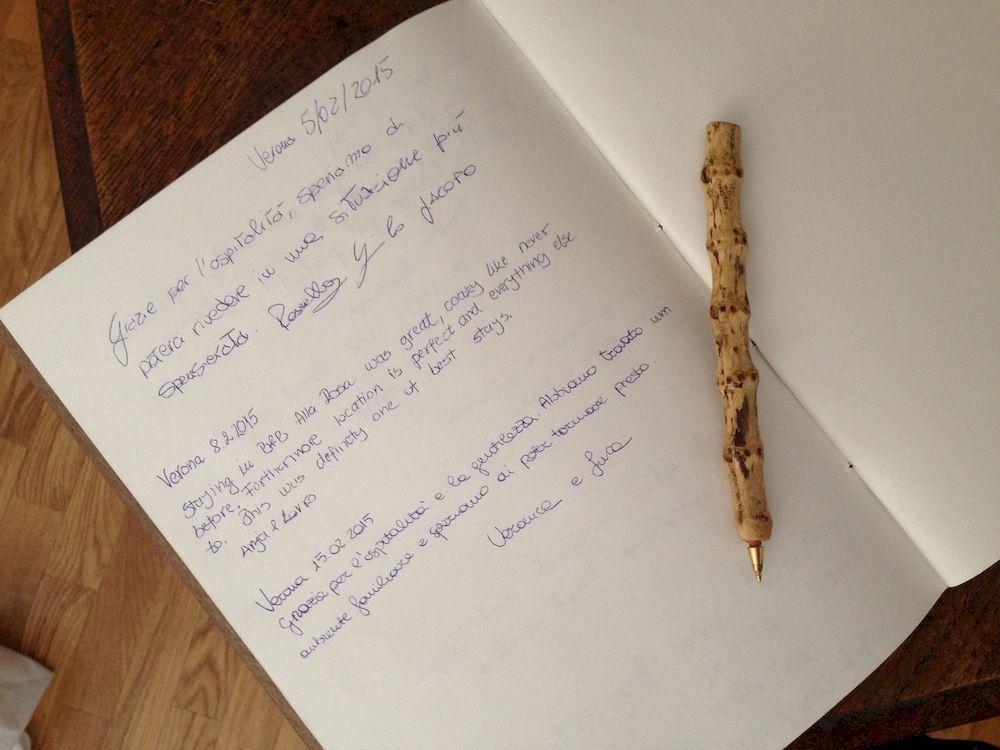 Verona 5/02/2015
Grazie per l'ospitalità, speriamo di
poterci rivedere in una situazione più
spensierata. Rossella e Jacopo
Verona 8.2.2015
Staying in B&B Alla Rosa was great, coazy like never
before. Furthermore location is perfect and everything else
to. This was definety one of best stays.
Anja & Lovro
Verona 15.02.2015
Grazie per l'ospitalità e la gentilezza. Abbiamo trovato un
ambiente familiare e speriamo di poter tornare presto
Veronica e Luca